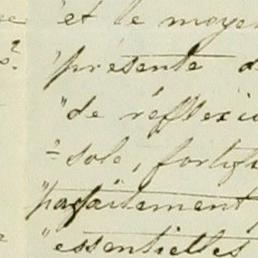 et le moyen
"présente d
"de réflexio
"sole, fortifi
"parfaitement
"essentielles